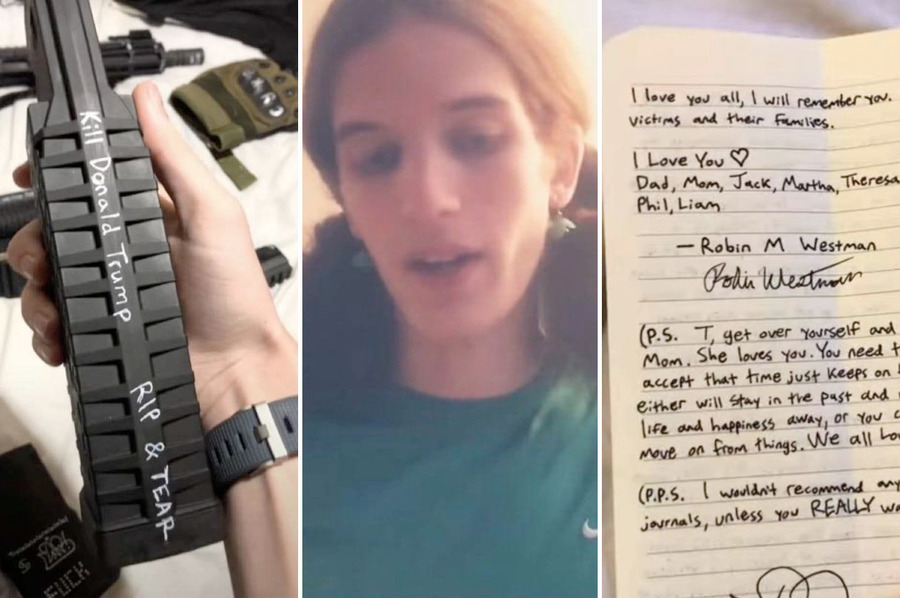 Kill Donald Trump
RIP & TEAR
FUCK
I love you all, I will remember you.
victims and their families.
I Love You ♡
Dad, Mom, Jack, Martha, Theresa
Phil, Liam
— Robin M Westman
Robin Westman
(P.S. T, get over yourself and
Mom. She loves you. You need t
accept that time just keeps on
either will stay in the past and
life and happiness away, or you c
move on from things. We all Lo
(P.P.S. I wouldn't recommend any
journals, unless you REALLY wa